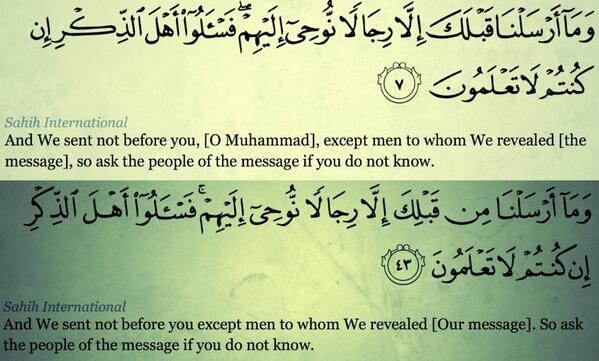 وَمَآ أَرْسَلْنَا قَبْلَكَ إِلَّا رِجَالًا نُّوحِىٓ إِلَيْهِمْ ۖ فَسْـَٔلُوٓا۟ أَهْلَ ٱلذِّكْرِ إِن
كُنتُمْ لَا تَعْلَمُونَ ٧
Sahih International
And We sent not before you, [O Muhammad], except men to whom We revealed [the
message], so ask the people of the message if you do not know.
وَمَآ أَرْسَلْنَا مِن قَبْلِكَ إِلَّا رِجَالًا نُّوحِىٓ إِلَيْهِمْ ۚ فَسْـَٔلُوٓا۟ أَهْلَ ٱلذِّكْرِ
إِن كُنتُمْ لَا تَعْلَمُونَ ٤٣
Sahih International
And We sent not before you except men to whom We revealed [Our message]. So ask
the people of the message if you do not know.